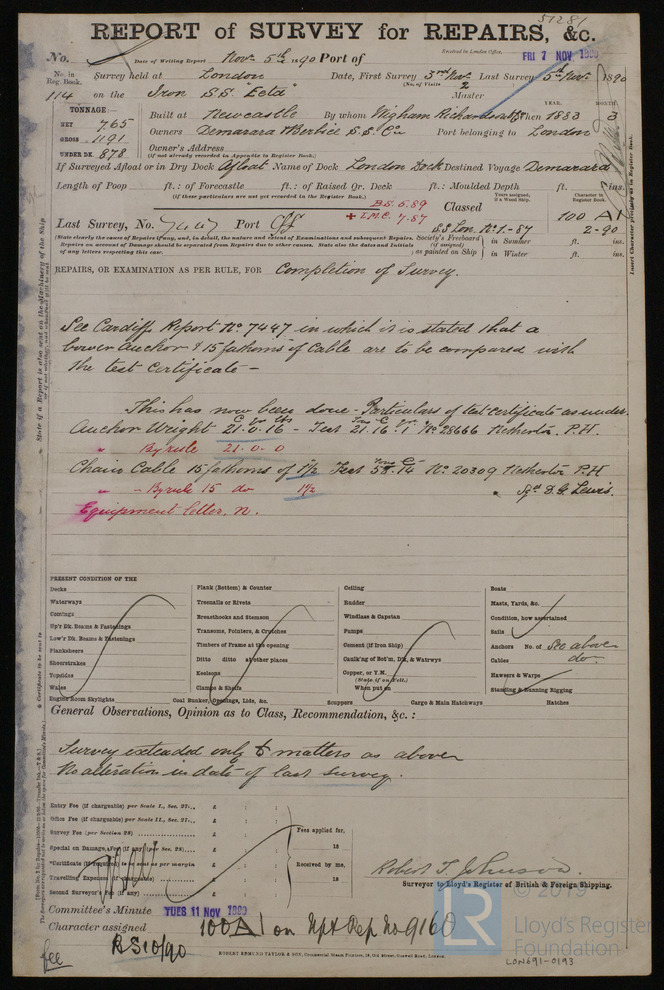 51281
REPORT of SURVEY for REPAIRS, &c.
No. Date of Writing Report Nov. 5th 1890 Port of Received in London Office, FRI 7 NOV 1890
No. in Reg. Book. Survey held at London Date, First Survey 3rd Nov. Last Survey 5th Nov. 1890
(No. of Visits 2
114 on the Iron S.S. "Ecta" Master
TONNAGE: YEAR. MONTH
NET 765 Built at Newcastle By whom Wigham Richardson When 1883 3
GROSS 1191 Owners Demarara & Berbice S.S. Co. Port belonging to London
UNDER DK 878 Owner's Address
(If not already recorded in Appendix to Register Book.)
If Surveyed Afloat or in Dry Dock Afloat Name of Dock London Dock Destined Voyage Demarara
Length of Poop ft.: of Forecastle ft.: of Raised Qr. Deck ft.: Moulded Depth ft. ins.
(If these particulars are not yet recorded in the Register Book.) Years assigned, if a Wood Ship. Character in Register Book.
B.S. 6.89 Classed 100 A1
+ L.M.C. 7.87
Last Survey, No. 7447 Port Cff SS Lon No. 1.-87 2-90
(State clearly the cause of Repairs (if any, and, in detail, the nature and extent of Examinations and subsequent Repairs. Repairs on account of Damage should be separated from Repairs due to other causes. State also the dates and Initials of any letters respecting this case.
Society's Freeboard (if assigned) as painted on Ship in Summer ft. ins.
in Winter ft. ins.
REPAIRS, OR EXAMINATION AS PER RULE, FOR Completion of Survey.
See Cardiff Report No. 7447 in which it is stated that a
bower Anchor & 15 fathoms of Cable are to be compared with
the test certificate -
This has now been done - Particulars of test certificate as under.
Anchor Weight 21.0.16 - Test 21.16.1 No. 28666 Netherton. P.H.
" By rule 21-0-0
Chain Cable 15 fathoms of 1½ Test 58.14 No. 20309 Netherton P.H
" - By rule 15 do 1½ Sgd. D.G. Lewis.
Equipment letter. n.
PRESENT CONDITION OF THE
Decks
Waterways
Comings
Up'r Dk. Beams & Fastenings
Low'r Dk. Beams & Fastenings
Planksheers
Sheerstrakes
Topsides
Wales
Engine Room Skylights
Plank (Bottom) & Counter
Treenails or Rivets
Breasthooks and Stemson
Transoms, Pointers, & Crutches
Timbers of Frame at the opening
Ditto ditto at other places
Keelsons
Clamps & Shelfs
Coal Bunker, Openings, Lids, &c.
Ceiling
Rudder
Windlass & Capstan
Pumps
Cement (if Iron Ship)
Caulk'ng of Bot'm, Dk, & Watrwys
Copper, or Y.M.
(State if on Felt.)
When put on
Scuppers
Cargo & Main Hatchways
Boats
Masts, Yards, &c.
Condition, how ascertained
Sails
Anchors No. of See above
Cables do.
Hawsers & Warps
Standing & Running Rigging
Hatches
General Observations, Opinion as to Class, Recommendation, &c. :
Survey extended only to matters as above
No alteration in date of last survey.
Entry Fee (if chargeable) per Scale I., Sec. 27... £
Office Fee (if chargeable) per Scale II., Sec. 21... £
Survey Fee (per Section 28) £
Special on Damage Fee (if any) (per Sec. 28) £
*Certificate (if required) to be sent as per margin £
Travelling Expenses (if chargeable) £
Second Surveyor's Fee (if any) £
Fees applied for,
18
Received by me,
18
Robert T. Johnson.
Surveyor to Lloyd's Register of British & Foreign Shipping.
Committee's Minute TUES 11 NOV 1890
Character assigned 100A1 on Npt Rep No 9160
BS 10/90
fee
ROBERT EDMUND TAYLOR & SON, Commercial Steam Printers, 19, Old Street, Goswell Road, London.
LR
© 2019
Lloyd's Register
Foundation
LON691-0193